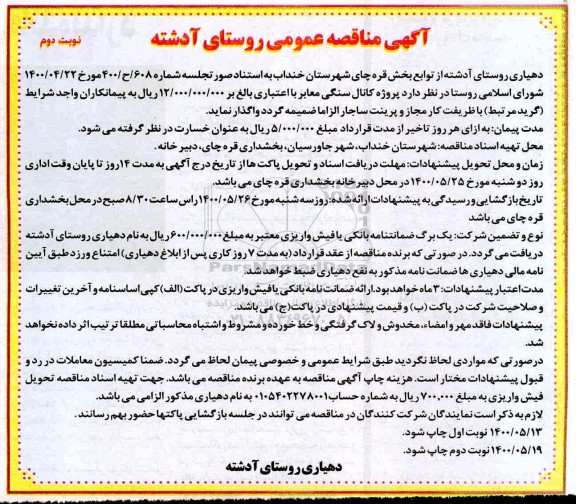 آگهی مناقصه عمومی روستای آدشته
نوبت دوم
دهیاری روستای آدشته از توابع بخش قره چای شهرستان خنداب به استناد صورتجلسه شماره ۶۰۸/ح/۴۰۰ مورخ ۱۴۰۰/۰۴/۲۲
شورای اسلامی روستا در نظر دارد پروژه کانال سنگی معابر با اعتباری بالغ بر ۱۲/۰۰۰/۰۰۰/۰۰۰ ریال به پیمانکاران واجد شرایط
(گرید مرتبط) با ظریفت کار مجاز و پرینت ساجار الزاما ضمیمه گردد واگذار نماید.
مدت پیمان: به ازای هر روز تاخیر از مدت قرارداد مبلغ ۵/۰۰۰/۰۰۰ ریال به عنوان خسارت در نظر گرفته می شود.
محل تهیه اسناد مناقصه: شهرستان خنداب، شهر جاورسیان، بخشداری قره چای، دبیرخانه.
زمان و محل تحویل پیشنهادات: مهلت دریافت اسناد و تحویل پاکت ها از تاریخ درج آگهی به مدت ۱۴ روز تا پایان وقت اداری
روز دوشنبه مورخ ۱۴۰۰/۰۵/۲۵ در محل دبیرخانه بخشداری قره چای می باشد.
تاریخ بازگشایی و رسیدگی به پیشنهادات ارائه شده: روز سه شنبه مورخ ۱۴۰۰/۰۵/۲۶ راس ساعت ۸/۳۰ صبح در محل بخشداری
قره چای می باشد
نوع و تضمین شرکت: یک برگ ضمانتنامه بانکی یا فیش واریزی معتبر به مبلغ ۶۰۰/۰۰۰/۰۰۰ ریال به نام دهیاری روستای آدشته
دریافت می گردد. در صورتی که برنده مناقصه از عقد قرارداد (به مدت ۷ روز کاری پس از ابلاغ دهیاری) امتناع ورزد طبق آیین
نامه مالی دهیاری ها ضمانت نامه مذکور به نفع دهیاری ضبط خواهد شد.
مدت اعتبار پیشنهادات: ۳ ماه خواهد بود. ارائه ضمانت نامه بانکی یا فیش واریزی در پاکت (الف) کپی اساسنامه و آخرین تغییرات
و صلاحیت شرکت در پاکت (ب) و قیمت پیشنهادی در پاکت (ج) می باشد.
پیشنهادات فاقد مهر و امضاء، مخدوش و لاک گرفتگی و خط خورده و مشروط و اشتباه محاسباتی مطلقا ترتیب اثر داده نخواهد
شد.
در صورتی که مواردی لحاظ نگردید طبق شرایط عمومی و خصوصی پیمان لحاظ می گردد. ضمنا کمیسیون معاملات در رد و
قبول پیشنهادات مختار است. هزینه چاپ آگهی مناقصه به عهده برنده مناقصه می باشد. جهت تهیه اسناد مناقصه تحویل
فیش واریزی به مبلغ ۷۰۰،۰۰۰ ریال به شماره حساب ۰۱۰۵۴۰۲۲۷۸۰۰۱ به نام دهیاری مذکور الزامی می باشد.
لازم به ذکر است نمایندگان شرکت کنندگان در مناقصه می توانند در جلسه بازگشایی پاکتها حضور بهم رسانند.
۱۴۰۰/۰۵/۱۳ نوبت اول چاپ شود.
۱۴۰۰/۰۵/۱۹ نوبت دوم چاپ شود.
دهیاری روستای آدشته